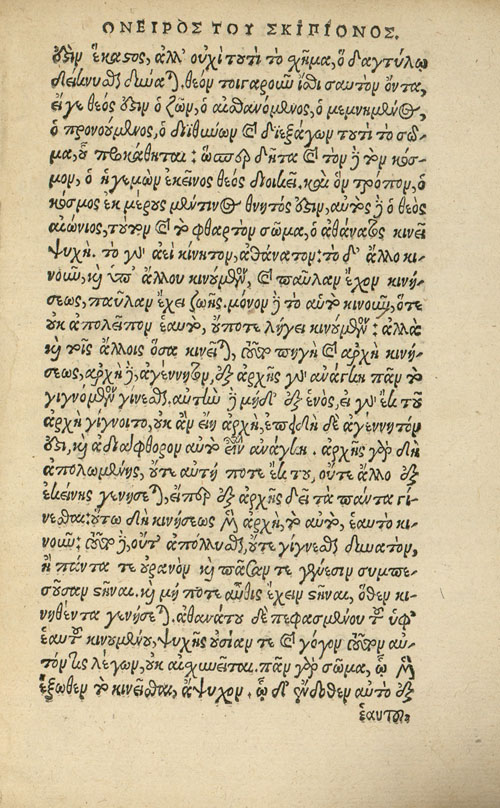 ΟΝΕΙΡΟΣ ΤΟΥ ΣΚΙΠΙΟΝΟΣ.
ὅϛιν ἕκαϛος, ἀλλ' οὐχὶ τουτὶ τὸ χῆμα, ὃ δαγτύλῳ
δείκνυϑς δύναται. θεὸν τοιγαροῦν ἴσθι σαυτὸν ὄντα,
εἴγε θεός ὅϛιν ὁ ζῶν, ὁ αἰσθανόμενος, ὁ μεμνημένος,
ὁ προνούμενος, ὁ διϊθύνων καὶ διεξάγων τουτὶ τὸ σῶ-
μα, οὗ προκάθηται: ὥσπερ δῆτα καὶ τὸν δὲ τὸν κόσ-
μον, ὁ ἡγεμὼν ἐκεῖνος θεὸς διοικεῖ. καὶ ὃν τρόπον, ὁ
κόσμος ἐκ μέρους μέν τινος θνητός ὅϛιν, αὐτὸς δὲ ὁ θεὸς
αἰώνιος, τοῦτον καὶ τὸ φθαρτὸν σῶμα, ὁ ἀθάνατος κινεῖ
ψυχή. τὸ γὰρ ἀεὶ κίνητον, ἀθάνατον: τὸ δ' ἄλλο κι-
νοῦν, καὶ ὑπ' ἄλλου κινούμενον, καὶ παῦλαν ἔχον κινή-
σεως, παῦλαν ἔχει ζωῆς. μόνον δὲ τὸ αὑτὸ κινοῦν, ὅτε
οὐκ ἀπολεῖπον ἑαυτὸ, οὔποτε λήγει κινούμενον: ἀλλὰ
καὶ τοῖς ἄλλοις ὅσα κινεῖται, τοῦτο πηγὴ καὶ ἀρχὴ κινή-
σεως, ἀρχὴ δὲ, ἀγέννητον, ἐξ ἀρχῆς γὰρ ἀνάγκη πᾶν τὸ
γιγνόμενον γίνεσθαι. αὐτὴν δὲ μηδ' ἐξ ἑνός, εἰ γὰρ ἔκ του
ἀρχὴ γίγνοιτο, οὐκ ἂν εἴη ἀρχὴ, ἐπειδὴ δὲ ἀγέννητόν
ὅϛι, καὶ ἀδιάφθορον αὐτὸ εἶναι ἀνάγκη. ἀρχῆς γὰρ δὴ
ἀπολωμένης, οὔτε αὐτή ποτε ἔκ του, οὔτε ἄλλο ἐξ
ἐκείνης γενήσεται, εἴπερ ἐξ ἀρχῆς δεῖ τὰ πάντα γί-
νεσθαι: οὕτω δὴ κινήσεως μὲν ἀρχὴ, τὸ αὐτὸ, ἑαυτὸ κι-
νοῦν: τοῦτο δὲ, οὔτ' ἀπόλλυσθαι, οὔτε γίγνεσθαι δυνατὸν,
ἢ πάντα τε οὐρανὸν καὶ πᾶσαν τε γένεσιν συμπε-
σοῦσαν ϛῆναι. καὶ μή ποτε αὖθις ἔχειν ϛῆναι, ὅθεν κι-
νηθέντα γενήσεται. ἀθανάτου δὲ πεφασμένου τοῦ ὑφ'
ἑαυτοῦ κινουμένου, ψυχῆς οὐσίαν τε καὶ λόγον τοῦτον αὐ-
τόν τις λέγων, οὐκ αἰσχυνεῖται. πᾶν γὰρ σῶμα, ᾧ μὲν
ἔξωθεν τὸ κινεῖσθαι, ἄψυχον. ᾧ δ' ἔνδοθεν αὐτὸ ἐξ
ἑαυτοῦ,